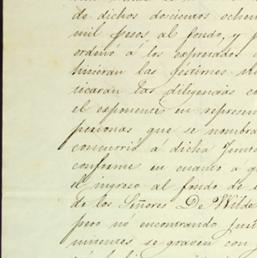 de dichos doscientos ochen
mil pesos, al fondo, y p
ordenó a los expresados
hicieran las
ticaran las diligencias co
el exponente en represen
personas que se nombra
concurrió a dicha Junta
conforme en cuanto a q
el ingreso al fondo de
de los Señores De Wilde
pero nó encontrando just
minentes se graven con